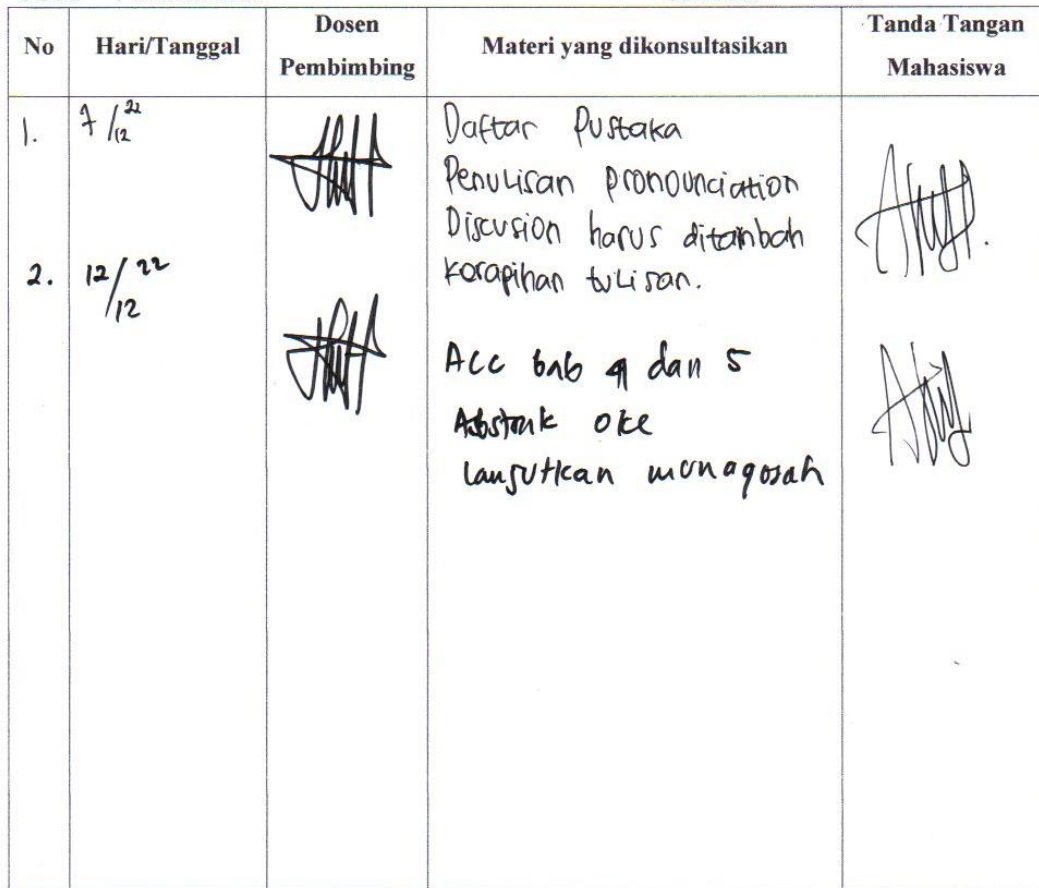 No Hari/Tanggal Dosen Pembimbing Materi yang dikonsultasikan Tanda Tangan Mahasiswa
1. 7/12 22 Daftar Pustaka
Penulisan pronounciation
Discusion harus ditambah
Kerapihan tulisan.
2. 12/12 22
ACC bab 4 dan 5
Abstrak oke
lanjutkan munaqosah